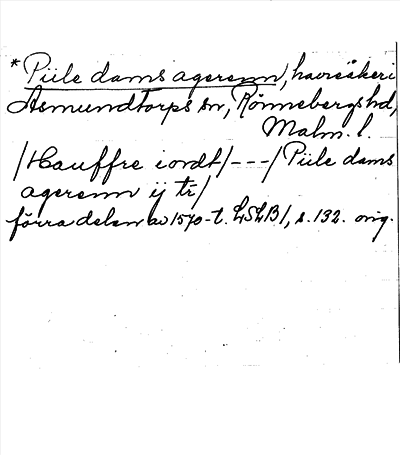 * Piile dams agerenn, havreåker i
Asmundtorps sn, Rönnebergs hd,
Malm. l.
/Hauffre iordt/---/Piile dams
agerenn ij tr/
förra delen av 1570-t. LSLB1, s. 132. orig.